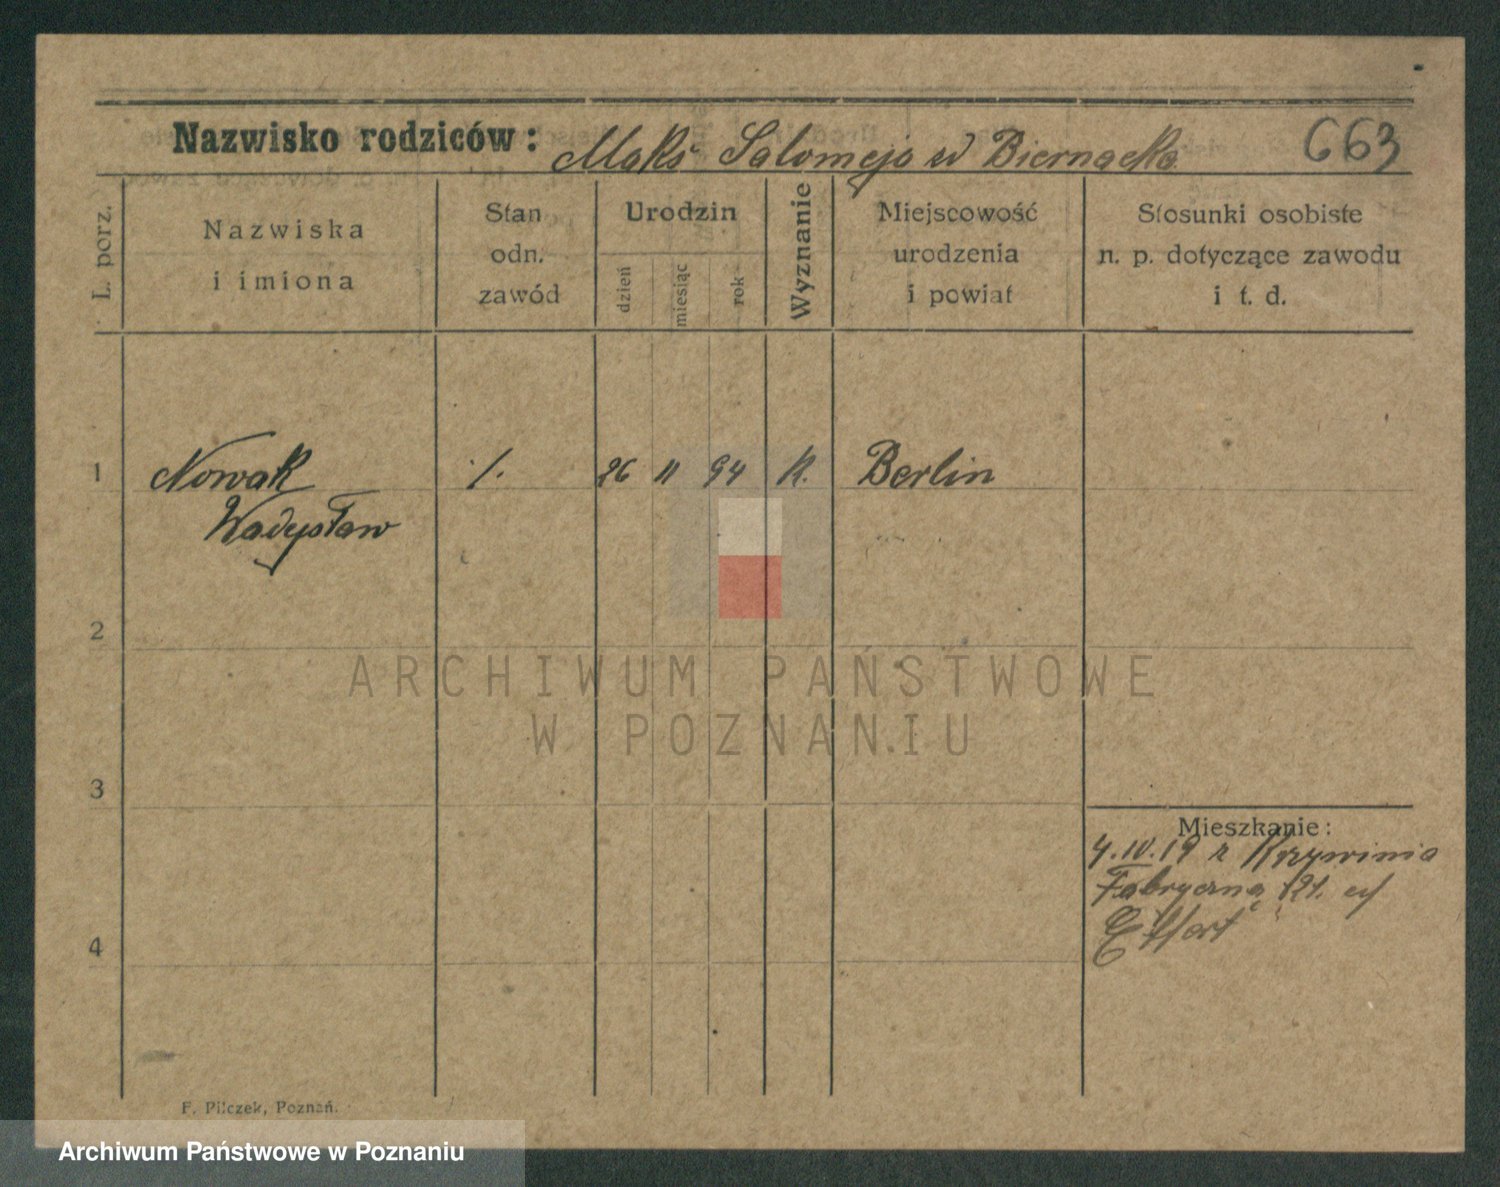 Nazwisko rodziców: Maks Salomeja w Biernacka 663
L. porz.
Nazwiska
i imiona
Stan
odn.
zawód
Urodzin
dzień
miesiąc
rok
Wyznanie
Miejscowość
urodzenia
i powiat
Stosunki osobiste
n. p. dotyczące zawodu
i t. d.
1 Nowak ./. 26 11 94 K. Berlin
Władysław
2
ARCHIWUM PAŃSTWOWE
W POZNANIU
3
Mieszkanie:
4.IV.19 z Krzywinia
Fabryczna 121.
4
F. Pilczek, Poznań.
Archiwum Państwowe w Poznaniu